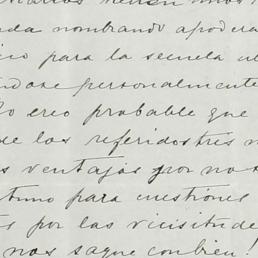 nombrando apodera
cio para la secuela
ndose personalmente
o creo probable que
de los referidos tres
s ventajas por no
timo para cuestiones
s por las vicisitude
nos saque con bien!